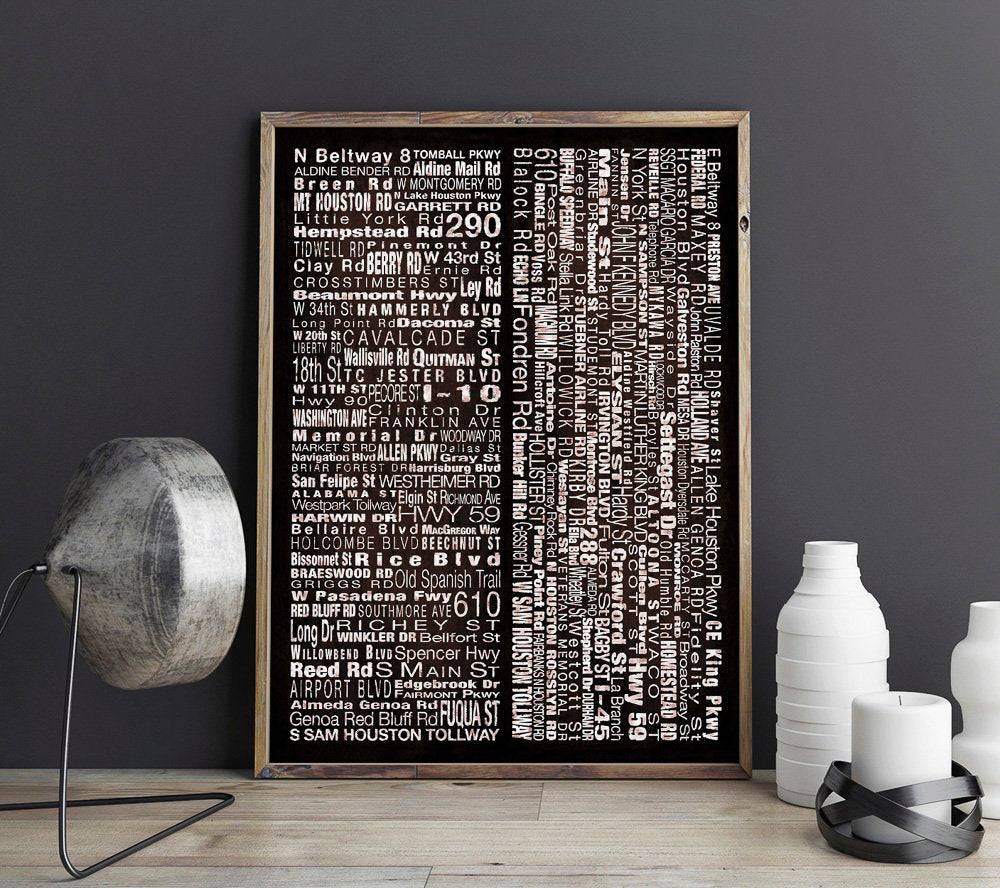 N Beltway 8 TOMBALL PKWY
ALDINE BENDER RD Aldine Mail Rd
Breen Rd W MONTGOMERY RD
MT HOUSTON RD N Lake Houston Pkwy
GARRETT RD
Little York Rd 290
Hempstead Rd
TIDWELL RD Pinemont Dr
Clay Rd BERRY RD W 43rd St
Ernie Rd
CROSSTIMBERS ST Ley Rd
Beaumont Hwy
W 34th St HAMMERLY BLVD
Long Point Rd Dacoma St
W 20th St CAVALCADE ST
LIBERTY RD Wallisville Rd QUITMAN ST
18th St TC JESTER BLVD
W 11TH ST PECORE ST I-10
Hwy 90
WASHINGTON AVE Clinton Dr
FRANKLIN AVE
Memorial Dr WOODWAY DR
MARKET ST RD ALLEN PKWY Dallas St
Navigation Blvd Gray St
BRIAR FOREST DR Harrisburg Blvd
San Felipe St WESTHEIMER RD
ALABAMA ST Elgin St RICHMOND AVE
Westpark Tollway
HARWIN DR HWY 59
Bellaire Blvd MACGREGOR WAY
HOLCOMBE BLVD BEECHNUT ST
Bissonnet St Rice Blvd
BRAESWOOD RD Old Spanish Trail
GRIGGS RD
W Pasadena Fwy 610
RED BLUFF RD SOUTHMORE AVE
Long Dr RICHEY ST
WINKLER DR Bellfort St
WILLOWBEND BLVD Spencer Hwy
Reed Rd S MAIN ST
AIRPORT BLVD Edgebrook Dr
FAIRMONT PKWY
Almeda Genoa Rd FUQUA ST
Genoa Red Bluff Rd
S SAM HOUSTON TOLLWAY
E Beltway 8 PRESTON AVE UVALDE RD Shaver St Lake Houston Pkwy CE King Pkwy
FEDERAL RD MAXEY RD John Ralston Rd HOLLAND AVE ALLEN GENOA RD Fidelity St
Houston Blvd Galveston Rd MESA DR Houston Dyersdale Rd MCCARTY ST Broadway St
SSGT MACARIO GARCIA DR Wayside Dr Settegast Dr Old Humble Rd HOMESTEAD RD
LOCKWOOD DR MONROE RD
REVEILLE RD Telephone Rd MYKAWA RD Hirsch Rd Broyles St ALTOONA ST WACO ST
N York St N SAMPSON ST MARTIN LUTHER KING BLVD Cullen Blvd Hwy 59
Jensen Dr JOHN F KENNEDY BLVD Aldine Westfield Rd SCOTT ST
FANNIN ST ELYSIAN ST Hardy St Crawford St La Branch
Main St Hardy Toll IRVINGTON BLVD Fulton St BAGBY ST I-45
AIRLINE DR Studewood St STUDEMONT ST Montrose Blvd 288 ALMEDA RD Shepherd Dr DURHAM DR
Greenbriar Dr STUEBNER AIRLINE RD KIRBY DR Ella Blvd Wheatley St Westcott St
BUFFALO SPEEDWAY Stella Link Rd WILLOWICK RD Weslayan St VETERANS MEMORIAL DR
610 Post Oak Rd Antoine Dr Chimney Rock Rd N HOUSTON ROSSLYN RD
BINGLE RD Voss Rd MAGNUM RD Hillcroft Ave HOLLISTER ST Piney Point Rd FAIRBANKS N HOUSTON RD
Blalock Rd ECHO LN Fondren Rd Bunker Hill Rd Gessner Rd W SAM HOUSTON TOLLWAY